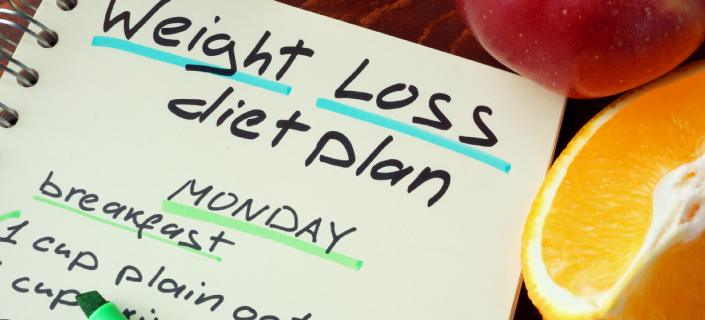 Weight Loss
diet plan
MONDAY
breakfast
1 cup plain
cup